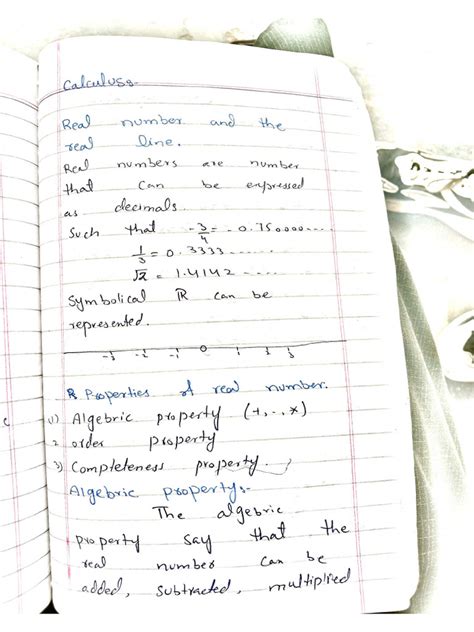 Calculus:-
Real number and the
real line.
Real numbers are number
that can be expressed
as decimals.
Such that -3/4 = -0.750000....
1/3 = 0.3333.....
√2 = 1.4142.....
Symbolical ℝ can be
represented.
-3 -2 -1 0 1 2 3
Properties of real number.
(1) Algebric property (+, -, ×)
2 order property
3) Completeness property.
Algebric property:-
The algebric
property say that the
real number can be
added, subtracted, multiplied